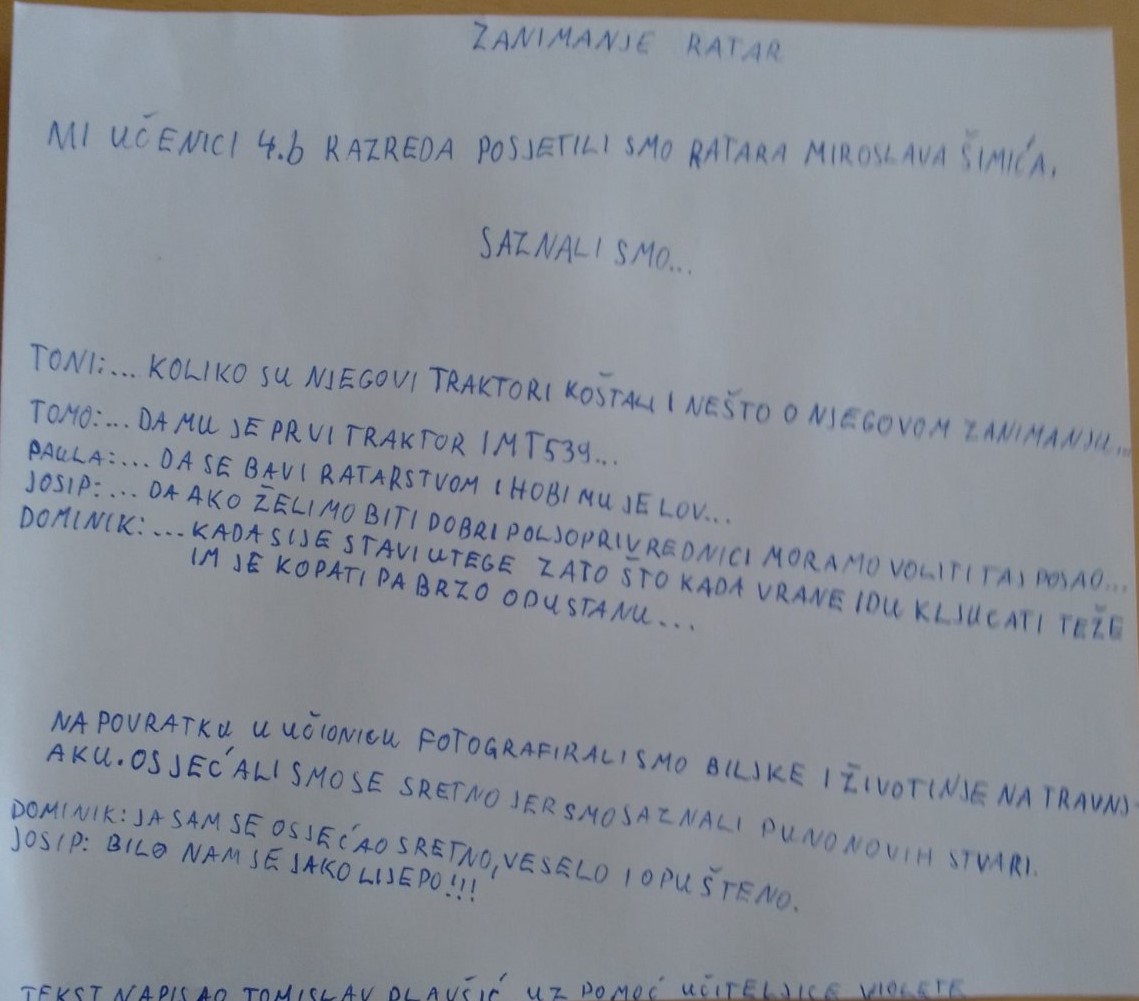 ZANIMANJE RATAR
MI UČENICI 4.b RAZREDA POSJETILI SMO RATARA MIROSLAVA ŠIMIĆA.
SAZNALI SMO...
TONI:... KOLIKO SU NJEGOVI TRAKTORI KOŠTALI I NEŠTO O NJEGOVOM ZANIMANJU...
TOMO:... DA MU JE PRVI TRAKTOR IMT539...
PAULA:... DA SE BAVI RATARSTVOM I HOBI MU JE LOV...
JOSIP:... DA AKO ŽELIMO BITI DOBRI POLJOPRIVREDNICI MORAMO VOLITI TAJ POSAO...
DOMINIK:... KADA SIJE STAVI UTEGE ZATO ŠTO KADA VRANE IDU KLJUCATI TEŽE
IM JE KOPATI PA BRZO ODUSTANU...
NA POVRATKU U UČIONICU FOTOGRAFIRALI SMO BILJKE I ŽIVOTINJE NA TRAVNJ-
AKU. OSJEĆALI SMO SE SRETNO JER SMO SAZNALI PUNO NOVIH STVARI.
DOMINIK: JA SAM SE OSJEĆAO SRETNO, VESELO I OPUŠTENO.
JOSIP: BILO NAM JE JAKO LIJEPO!!!
TEKST NAPISAO TOMISLAV PLAVŠIĆ UZ POMOĆ UČITELJICE VIOLETE